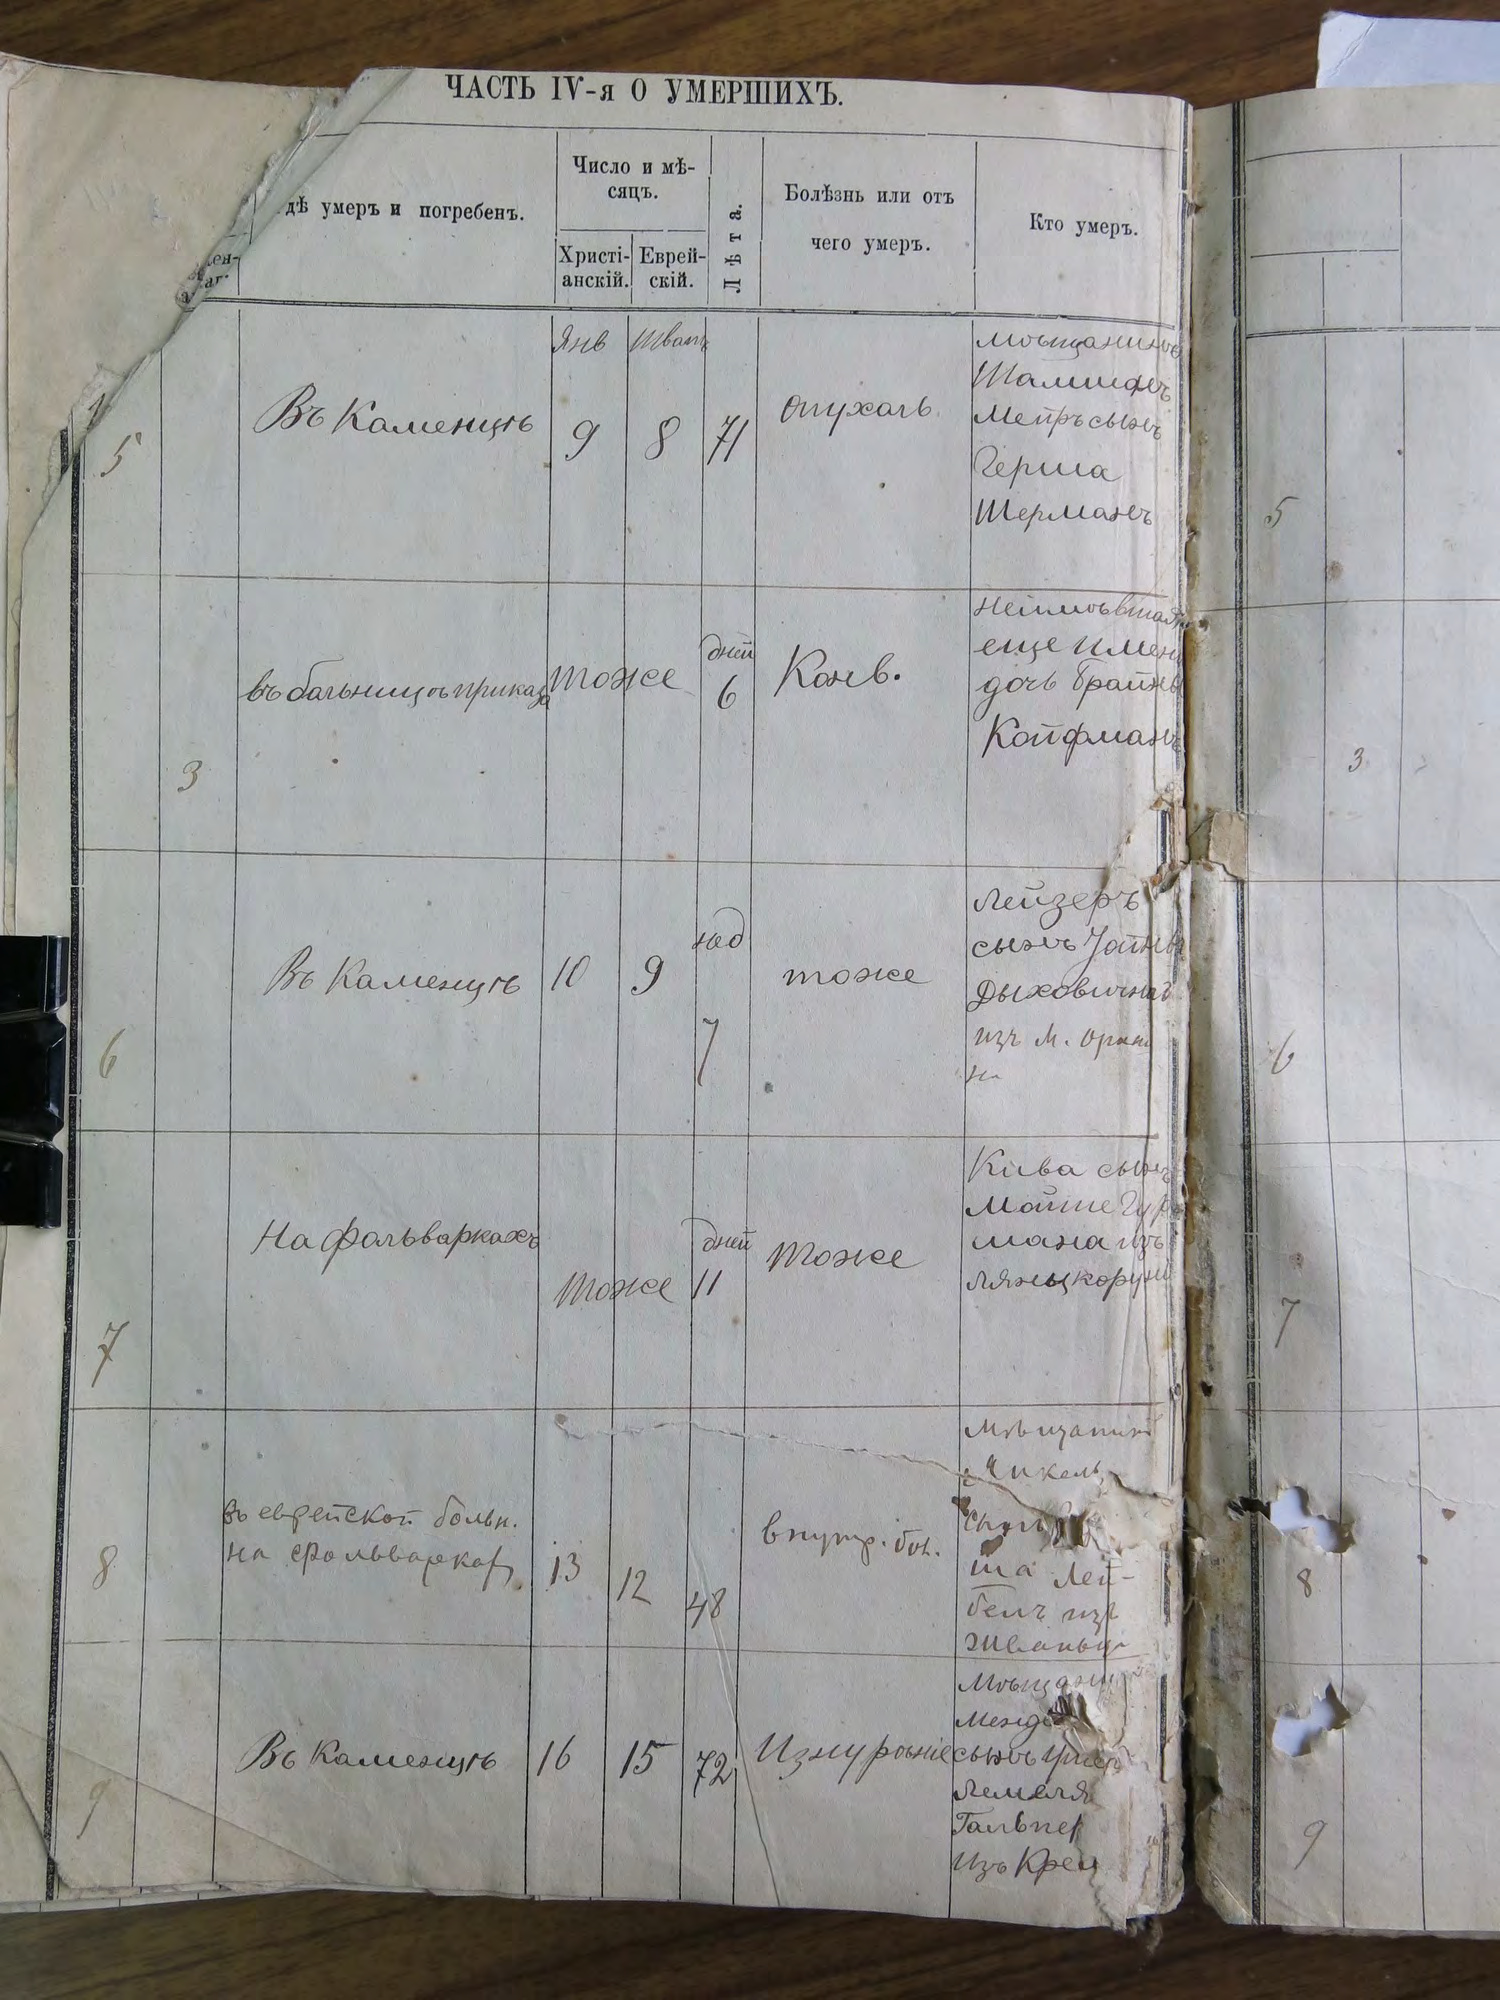 ЧАСТЬ IV-я О УМЕРШИХЪ.
дѣ умеръ и погребенъ.
Число и мѣ-
сяцъ.
Христі-
анскій.
Еврей-
скій.
Лѣта.
Болѣзнь или отъ
чего умеръ.
Кто умеръ.
5
Въ Каменцѣ
Янв
9
Шватъ
8
71
опухаль
мѣщанинъ
Меиръ сынъ
Герша
Шерманъ
5
3
въ больницѣ приказа
тоже
дней
6
Конв.
неимѣвшая
еще имени
дочь Брайны
Койфманъ
3
6
Въ Каменцѣ
10
9
над
7
тоже
Лейзеръ
сынъ
изъ м.
6
7
На фольваркахъ
тоже
дней
11
тоже
Кива сынъ
Мошке
мана изъ
Лянцкоруни
7
8
въ еврейской больн.
на фольварках
13
12
48
внутр. бол.
Мѣщанин
ша Лей-
изъ
8
9
Въ Каменцѣ
16
15
72
Изнурѣніе
Мѣщани
сынъ
Гальпер
изъ Крем
9